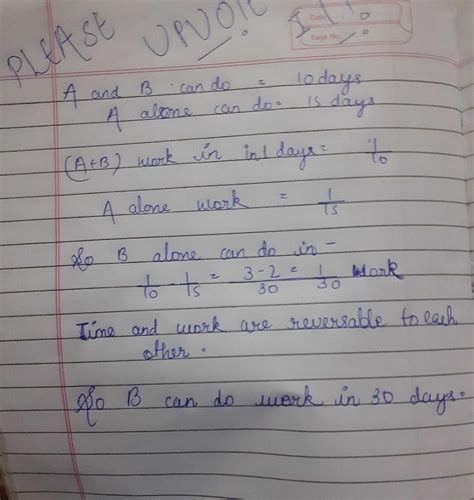 PLEASE UPVOTE !!!
Date
Page No.
A and B can do = 10 days
A alone can do = 15 days
(A+B) work in in 1 days = 1/10
A alone work = 1/15
So B alone can do in -
1/10 - 1/15 = 3-2/30 = 1/30 work
Time and work are reversable to each
other.
So B can do work in 30 days.